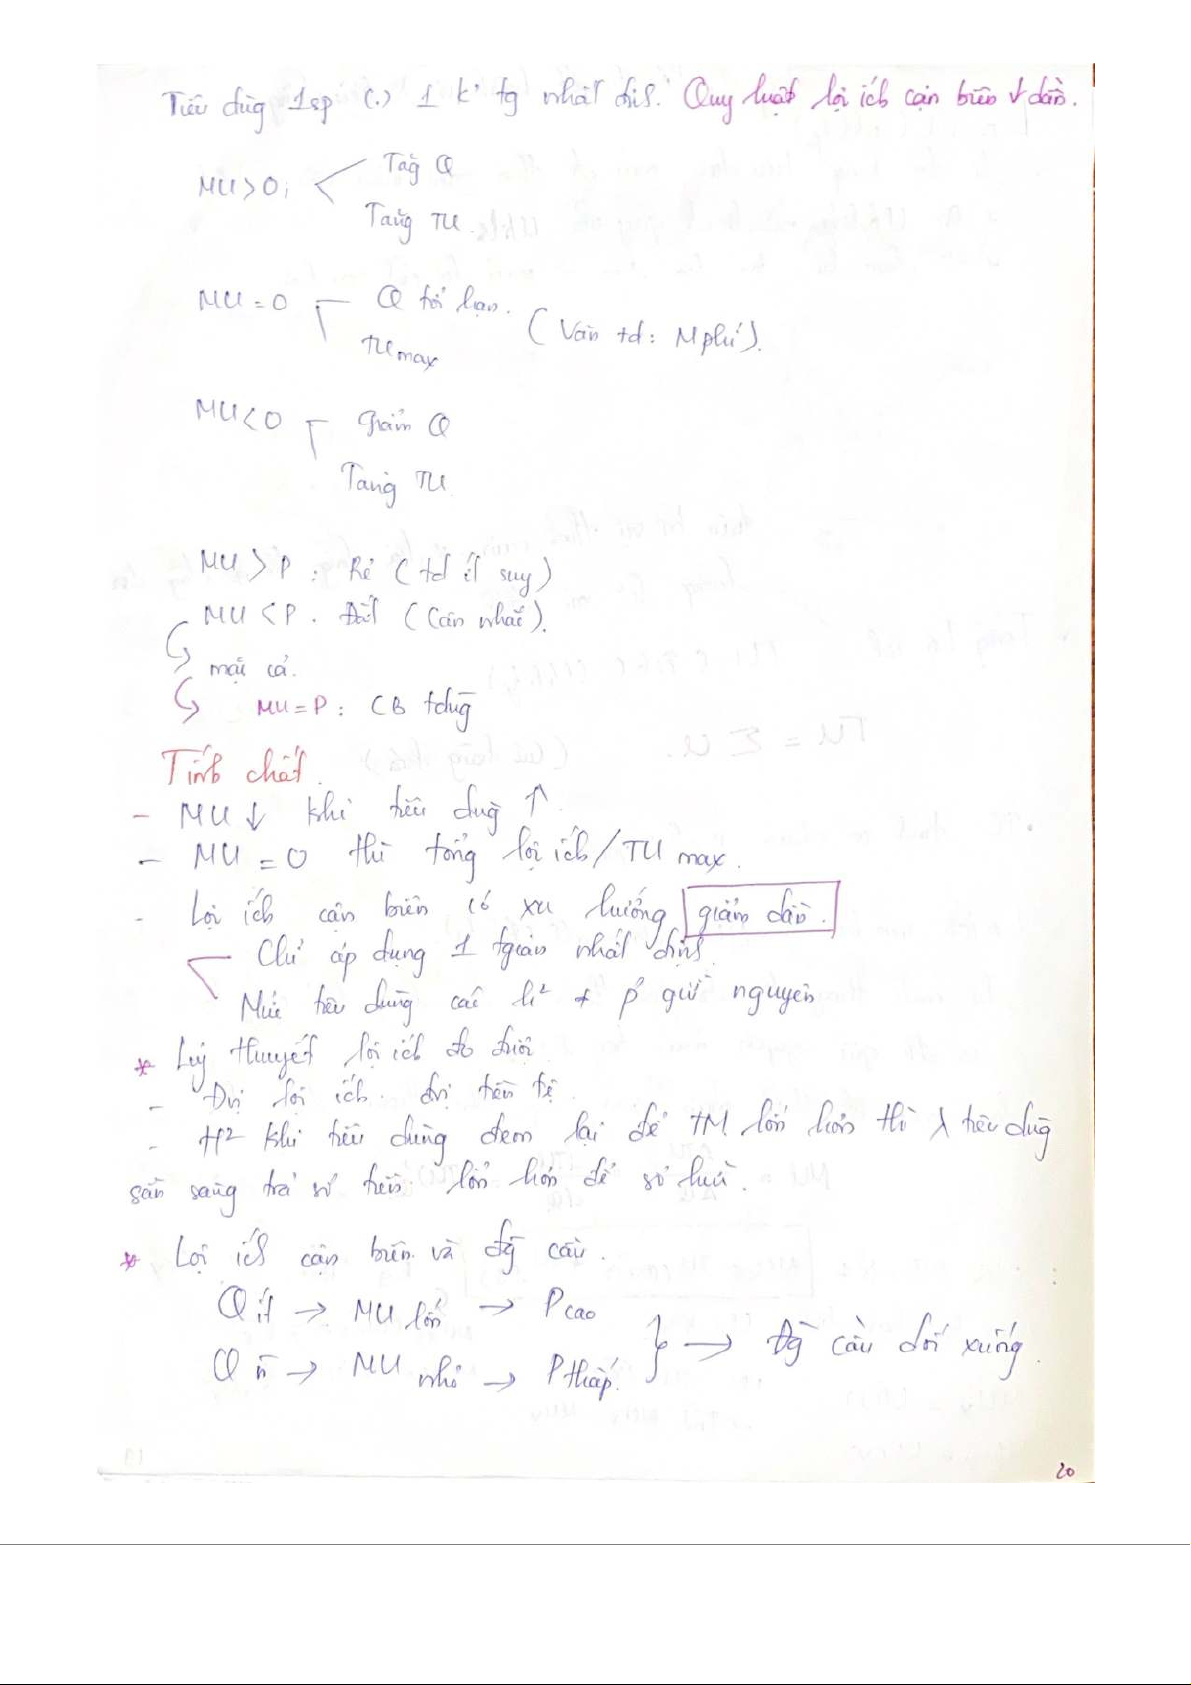 Tiêu dùg 1sp (.) 1 k' tg nhất địh. Quy luật lợi ích cận biên ↓ dần.
MU > 0; Tăg Q
Tăng TU.
MU = 0 Q tới hạn.
TU max (Vẫn td: M phí).
MU < 0 Giảm Q
Tăng TU
MU > P : Rẻ (td ít suy)
MU < P . Đắt (Cân nhắc).
mặc cả.
MU = P : CB tdùg
Tính chất.
- MU ↓ khi tiêu dùg ↑.
- MU = 0 thì tổng lợi ích/TU max.
- Lợi ích cận biên có xu hướng giảm dần.
Chỉ áp dụng 1 tgian nhất định.
Mức tiêu dùng các h² + p' giữ nguyên
* Lý thuyết lợi ích đo được
- Đvị lợi ích: đvị tiền tệ.
- H² khi tiêu dùng đem lại để TM lớn hơn thì λ tiêu dùg
sẵn sàng trả số tiền lớn hơn để sở hữu.
* Lợi ích cận biên và đg cầu.
Q ít → MU lớn → P cao
Q n → MU nhỏ → P thấp. } → Đg cầu dốc xuống.
20